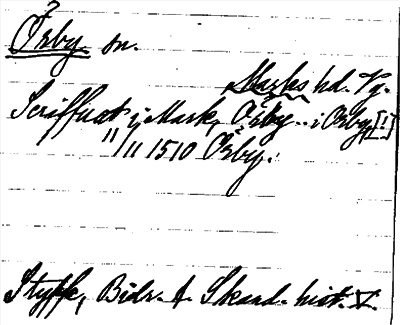 Örby sn.
Marks hd. Vg.
Scriffuat i Mark, Örby .. i Örby [!]
11/11 1510 Örby.
Styffe, Bidr. t. Skand. hist. V.